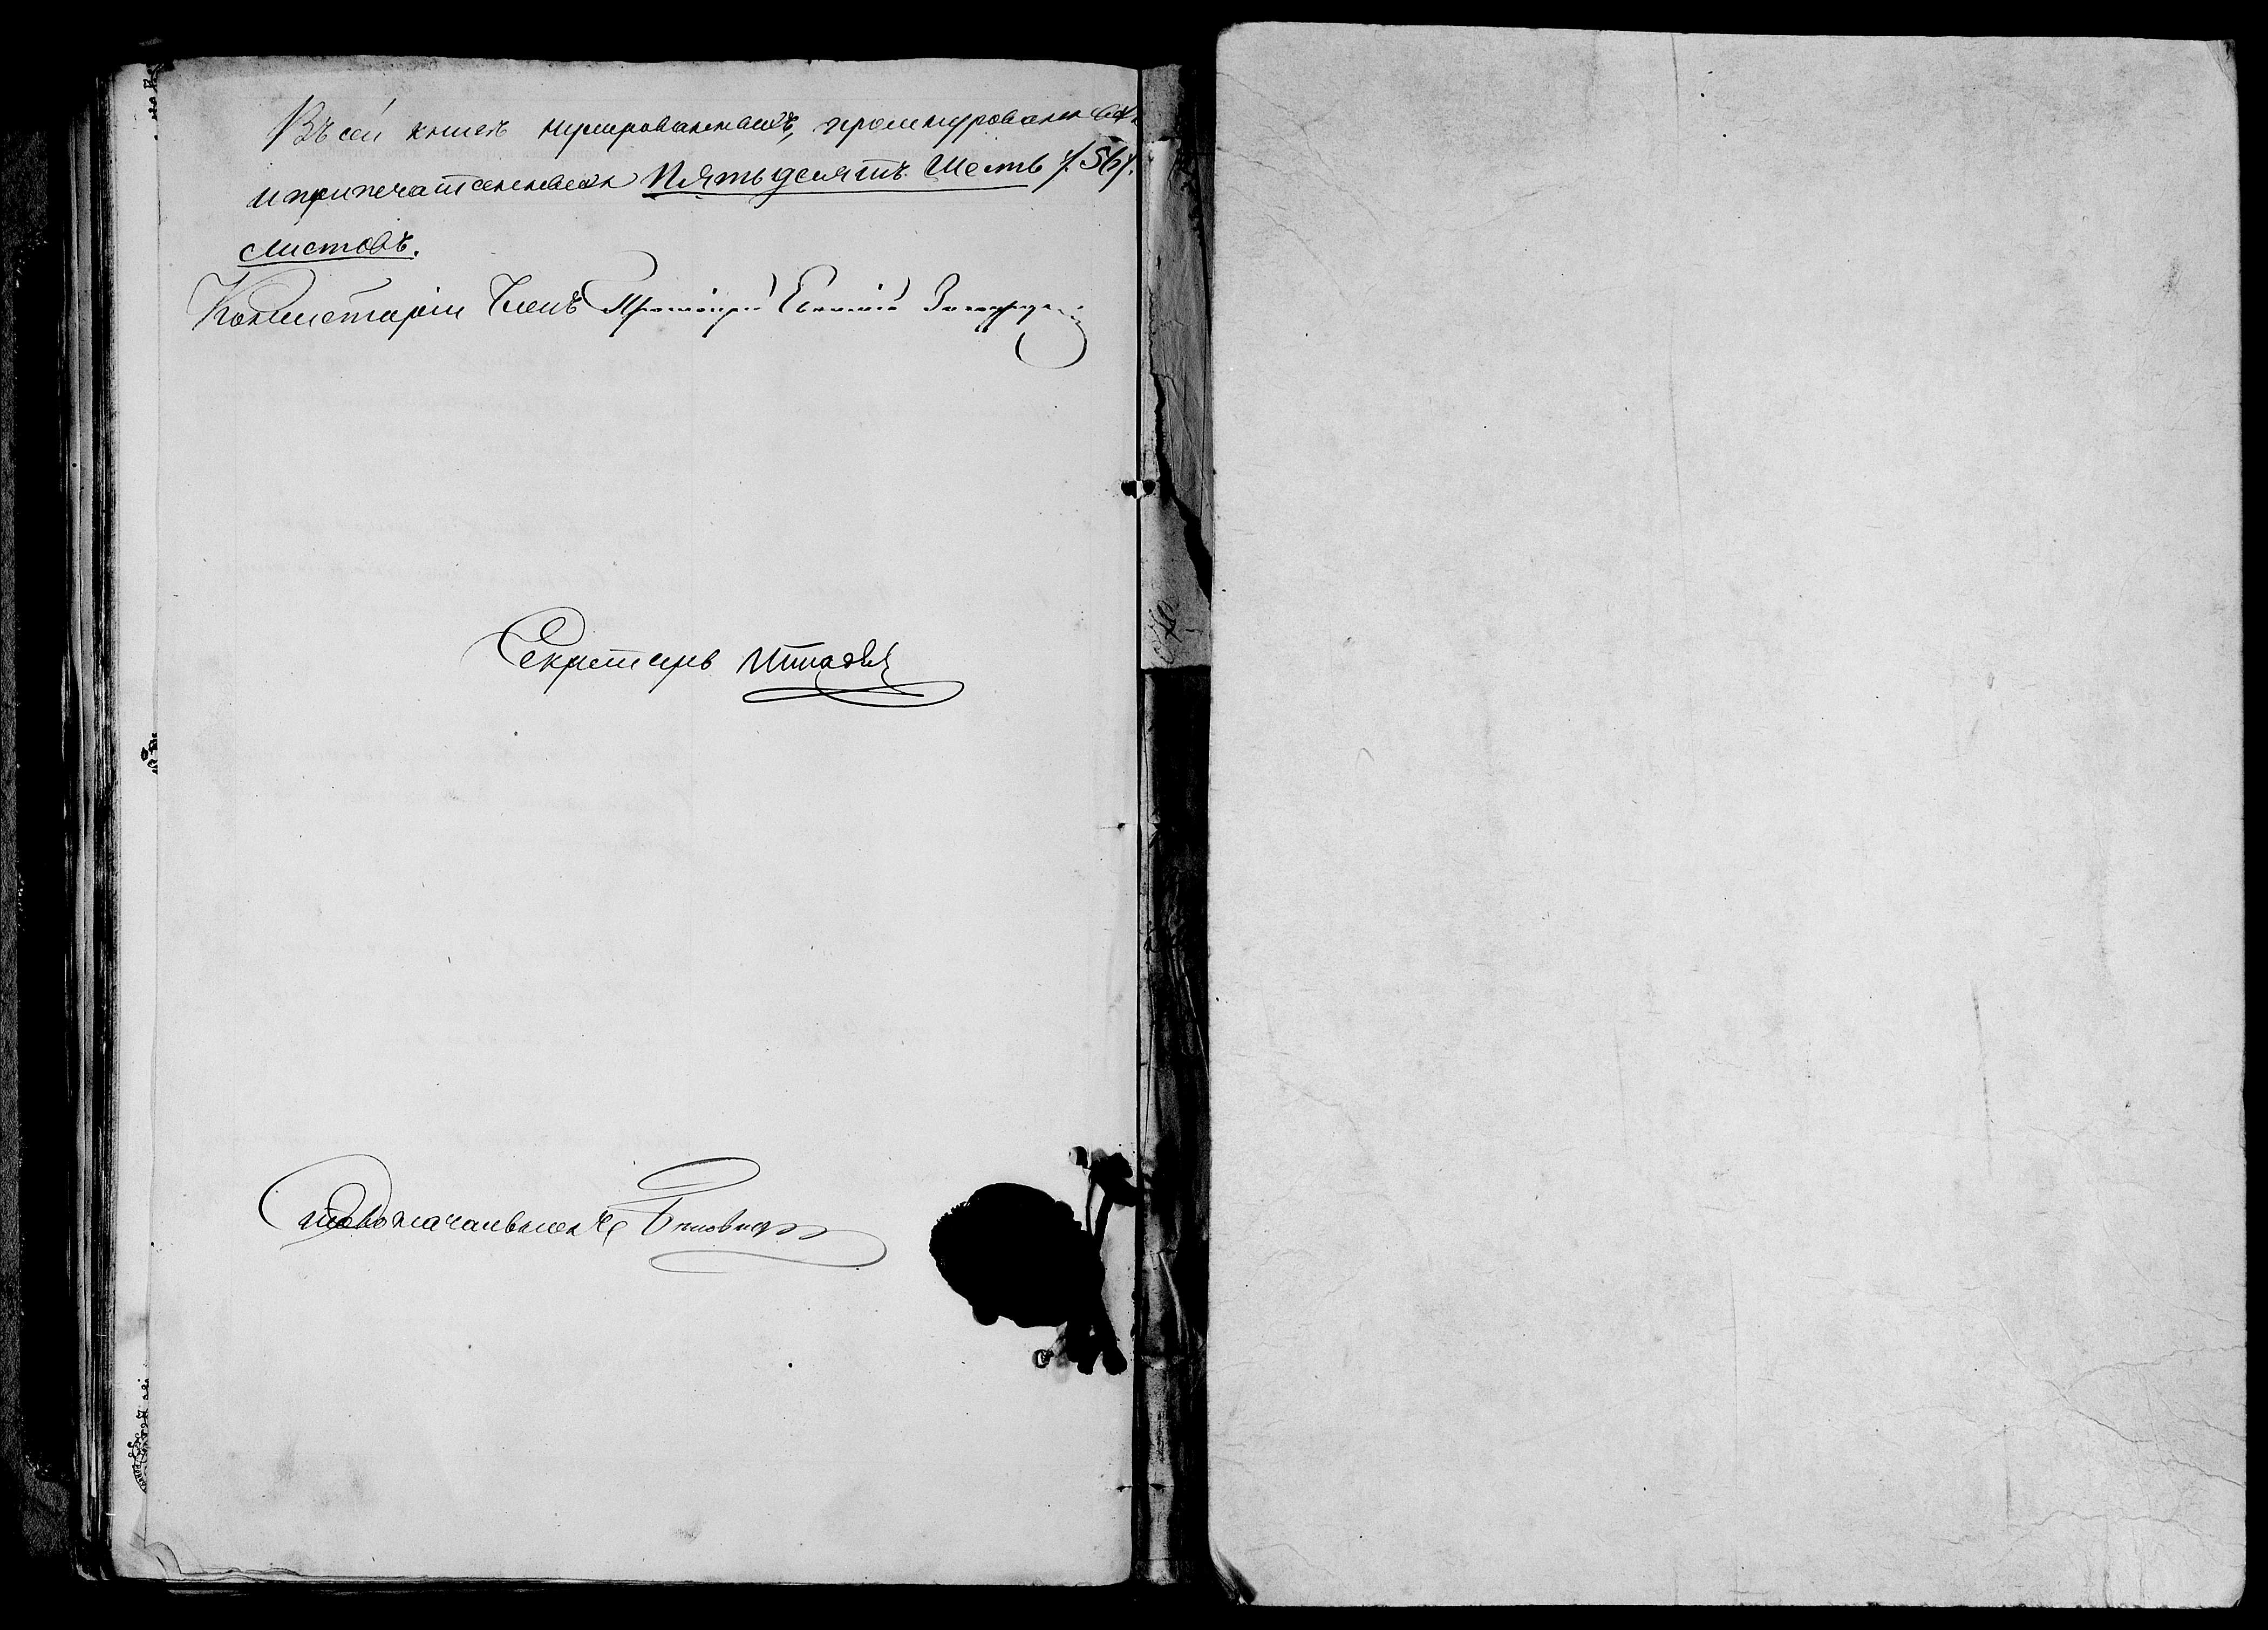 Въ сей книгѣ нумерованныхъ, прошнурованныхъ
и припечатанныхъ Пятьдесятъ Шесть /:56:/
листовъ.
Консисторіи Членъ Протоіерей Евгеній
Секретарь
Столоначальникъ